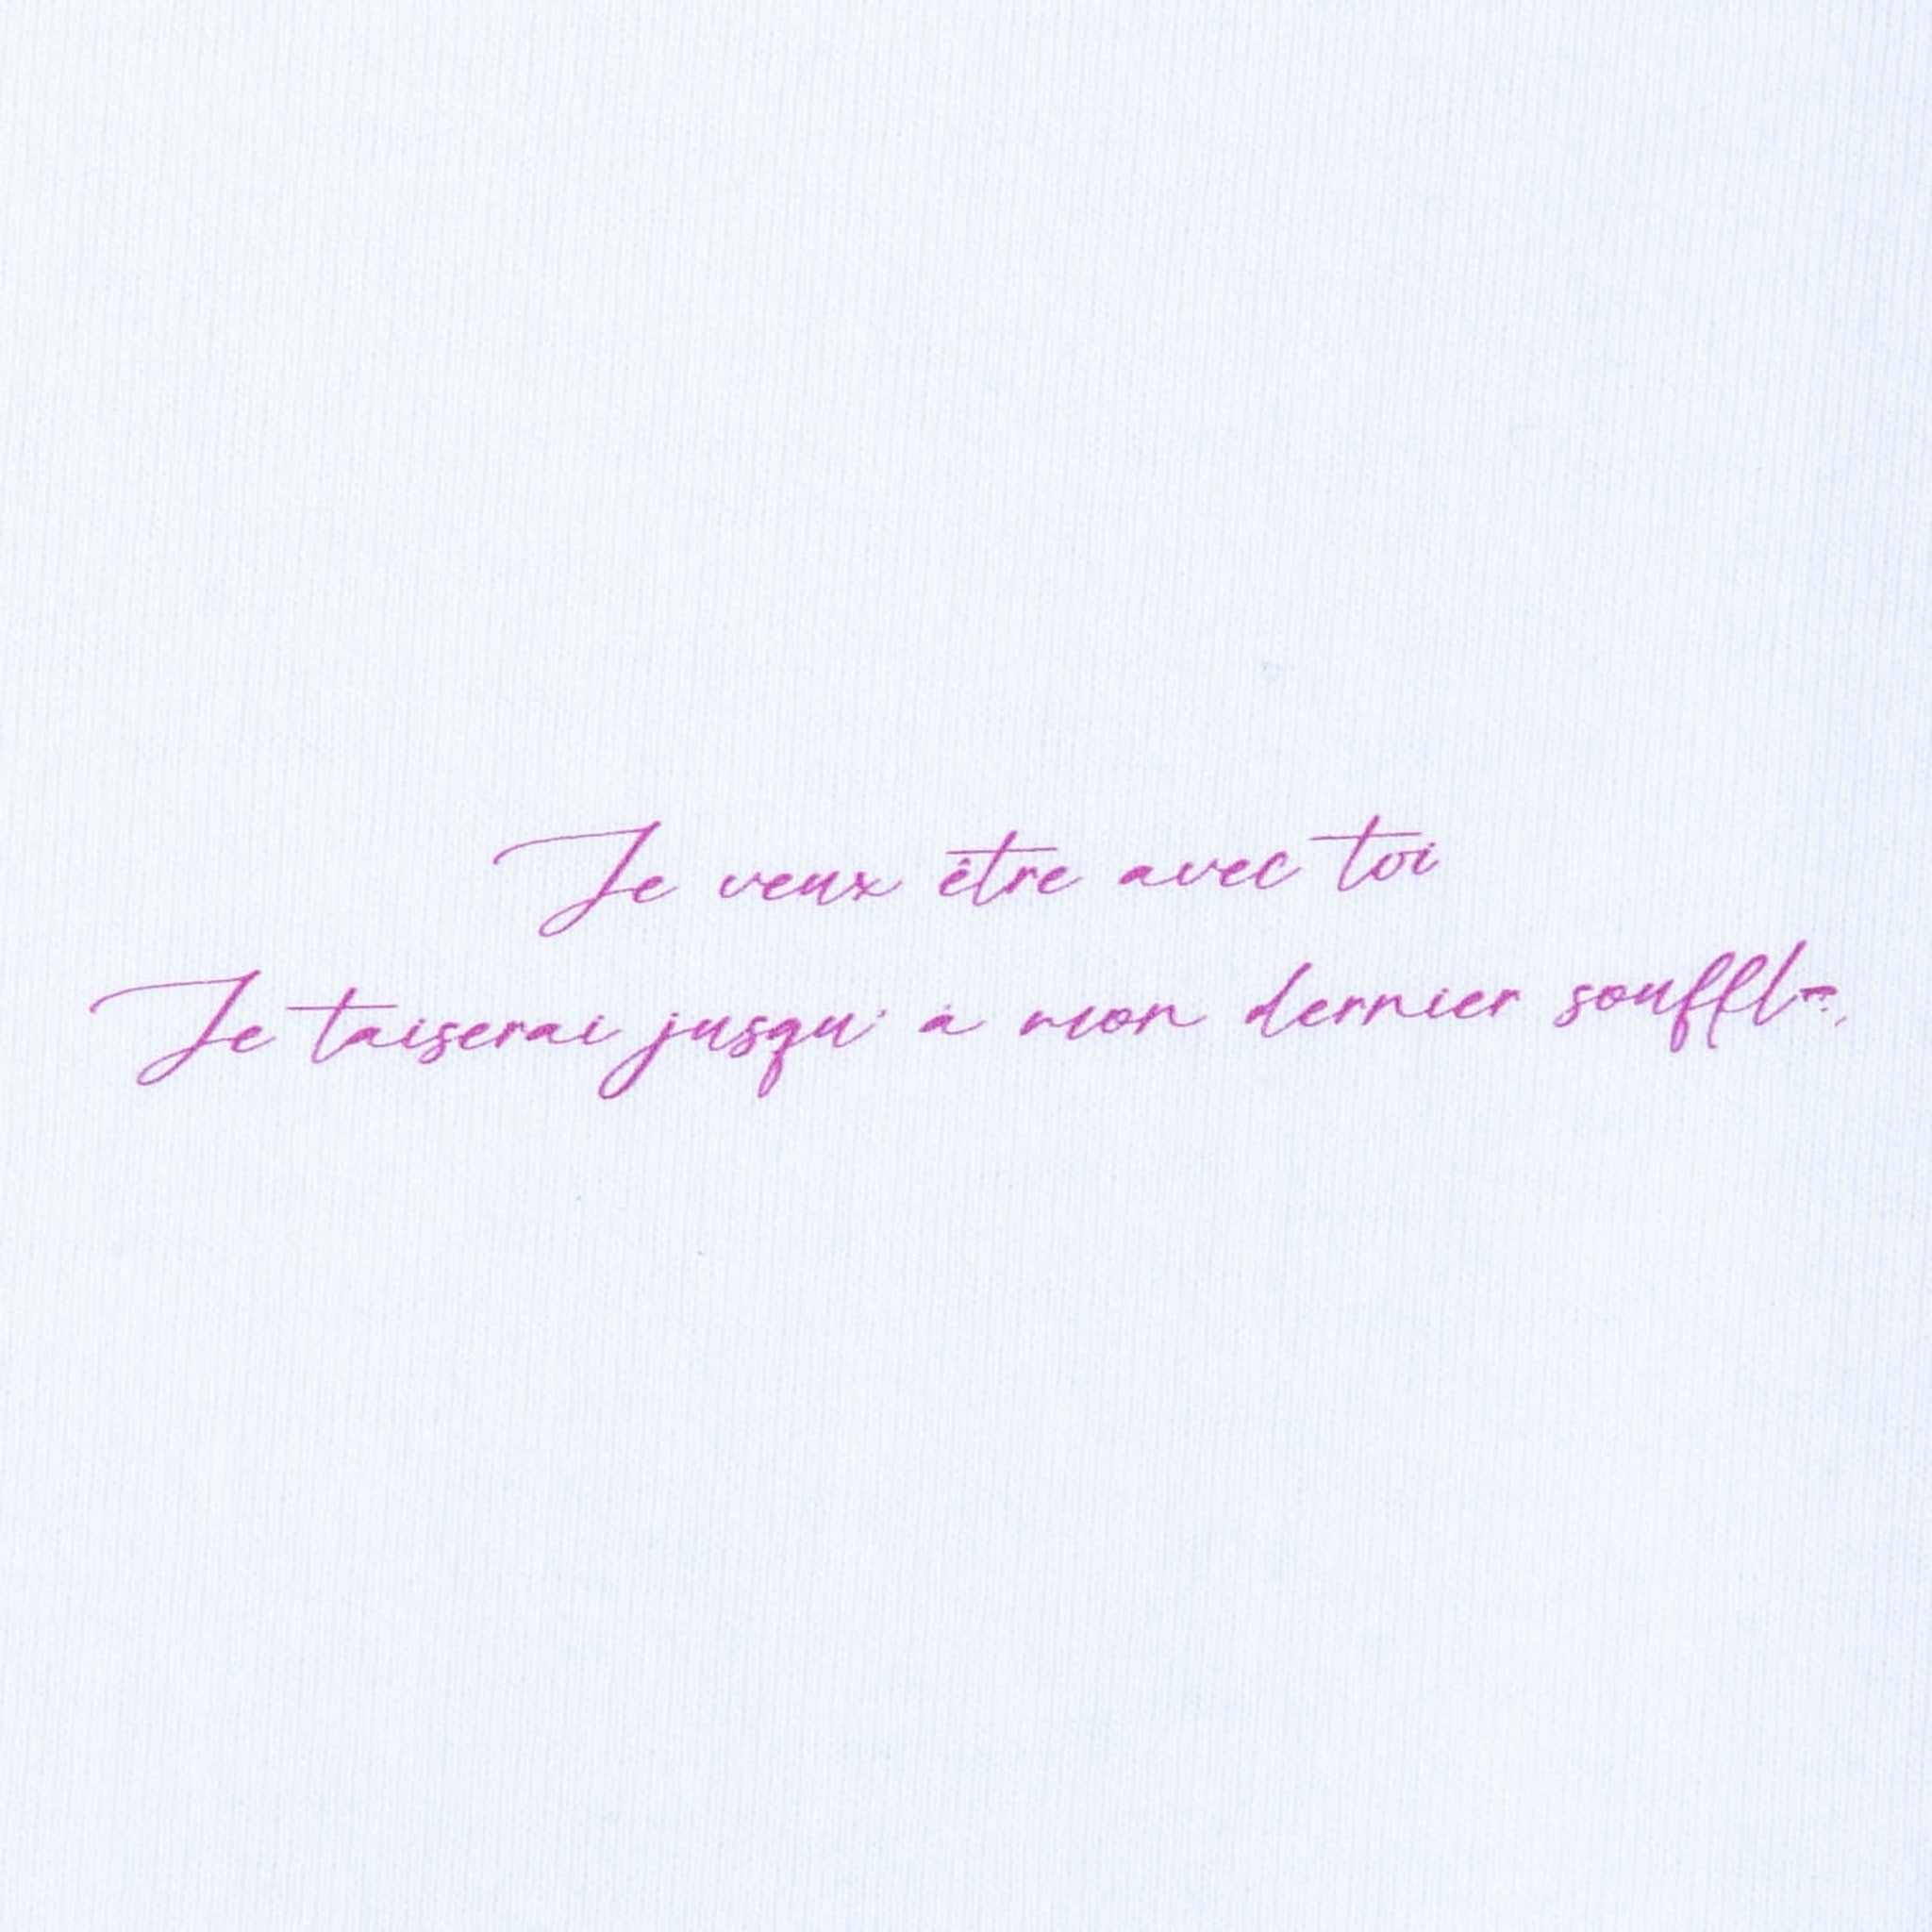 Je veux être avec toi
Je taiserai jusqu' à mon dernier